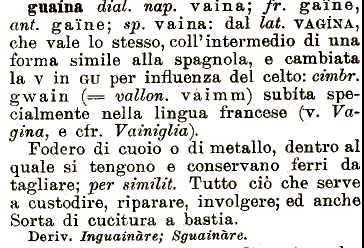 guaína dial. nap. vaina; fr. gaîne,
ant. gaïne; sp. vaina: dal lat. VAGÍNA,
che vale lo stesso, coll'intermedio di una
forma simile alla spagnola, e cambiata
la V in GU per influenza del celto: cimbr.
gwain (= vallon. vaimm) subíta spe-
cialmente nella lingua francese (v. Va-
gina, e cfr. Vainiglia).
Fodero di cuoio o di metallo, dentro al
quale si tengono e conservano ferri da
tagliare; per similit. Tutto ciò che serve
a custodire, riparare, involgere; ed anche
Sorta di cucitura a bastia.
Deriv. Inguainàre; Sguainàre.